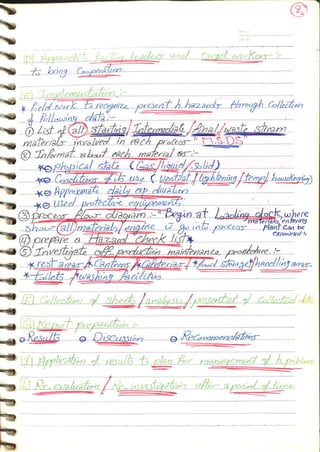 2
(D) Approach to leaders and target workers:-
to bring Cooperation.
(E) Implementation:-
* Field work to recognize present h. hazards through Collection
of following data:-
① List of (all) starting/Intermediate/final/waste stream
materials involved in each process "MSDS"
② Informat. about each material as:-
* Physical state (Gas/liquid/Solid)
* Conditions of its use (Ventilat/lightening/temp/housekeeping)
* Approximate daily exp. duration
* Used protective equipments
③ process flow diagram:- "Begin at Loading dock, where
materials entering
show (all) materials/ engine it go into process
plant can be
examined"
④ prepare a Hazard Check list *
⑤ Investigate off production maintenance procedure:-
* rest areas * Canteens * Cafeterias * food storage/handling areas
* toilets/washing Facilities.
(F) Collection of sheets/analysis/presentat of collected data
(G) Report preparation:-
Results Discussion Recommendations
Application of results to plan for management of h. problems
Re. evaluation/Re investigation after a period of time